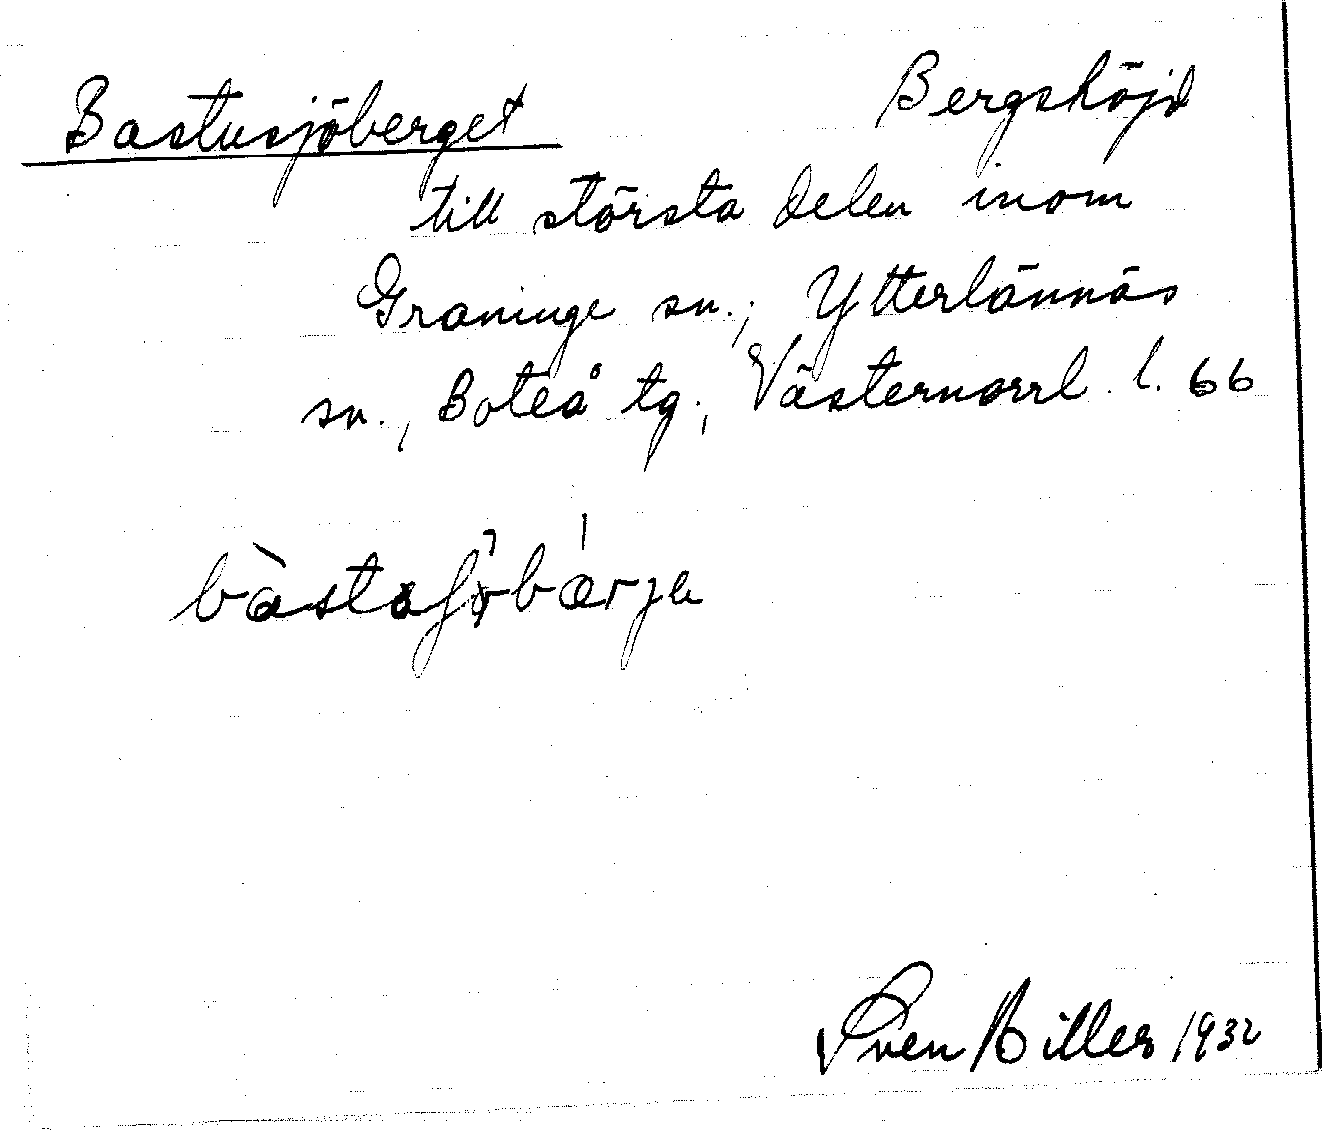 Bastusjöberget Bergshöjd
till största delen inom
Graninge sn.; Ytterlännäs
sn., Boteå tg., Västernorrl. l. 66
Sven Biller 1932